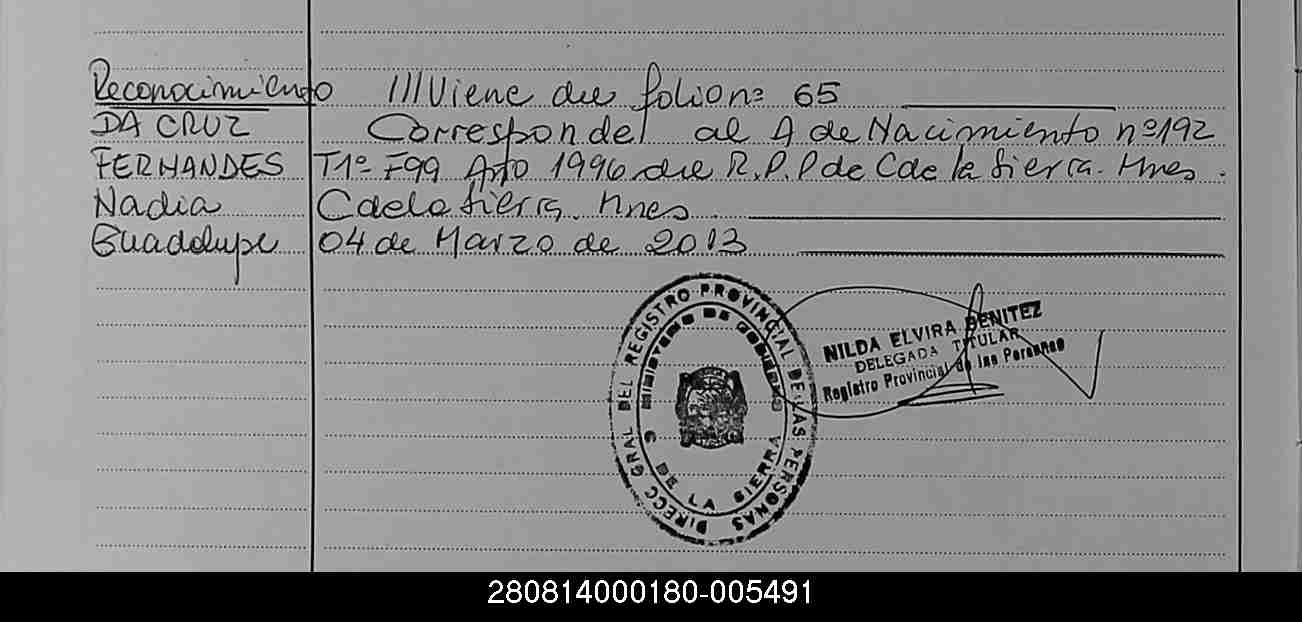 Reconocimiento
DA CRUZ
FERNANDES
Nadia
Guadalupe
///Viene del folio nº 65
Corresponde al A de Nacimiento nº 192
T1º F99 Año 1996 del R.P.P de C de la Sierra. Mnes.
C de la Sierra. Mnes.
04 de Marzo de 2013
DIRECC GRAL DEL REGISTRO PROVINCIAL DE LAS PERSONAS
MINISTERIO DE GOBIERNO
C DE LA SIERRA
NILDA ELVIRA BENITEZ
DELEGADA TITULAR
Registro Provincial de las Personas
280814000180-005491